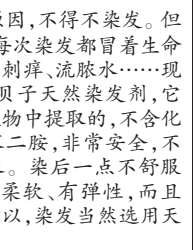 原因，不得不染发。但
每次染发都冒着生命
刺痒、流脓水……现
贝子天然染发剂，它
物中提取的，不含化
二胺，非常安全，不
。染后一点不舒服
柔软、有弹性，而且
以，染发当然选用天